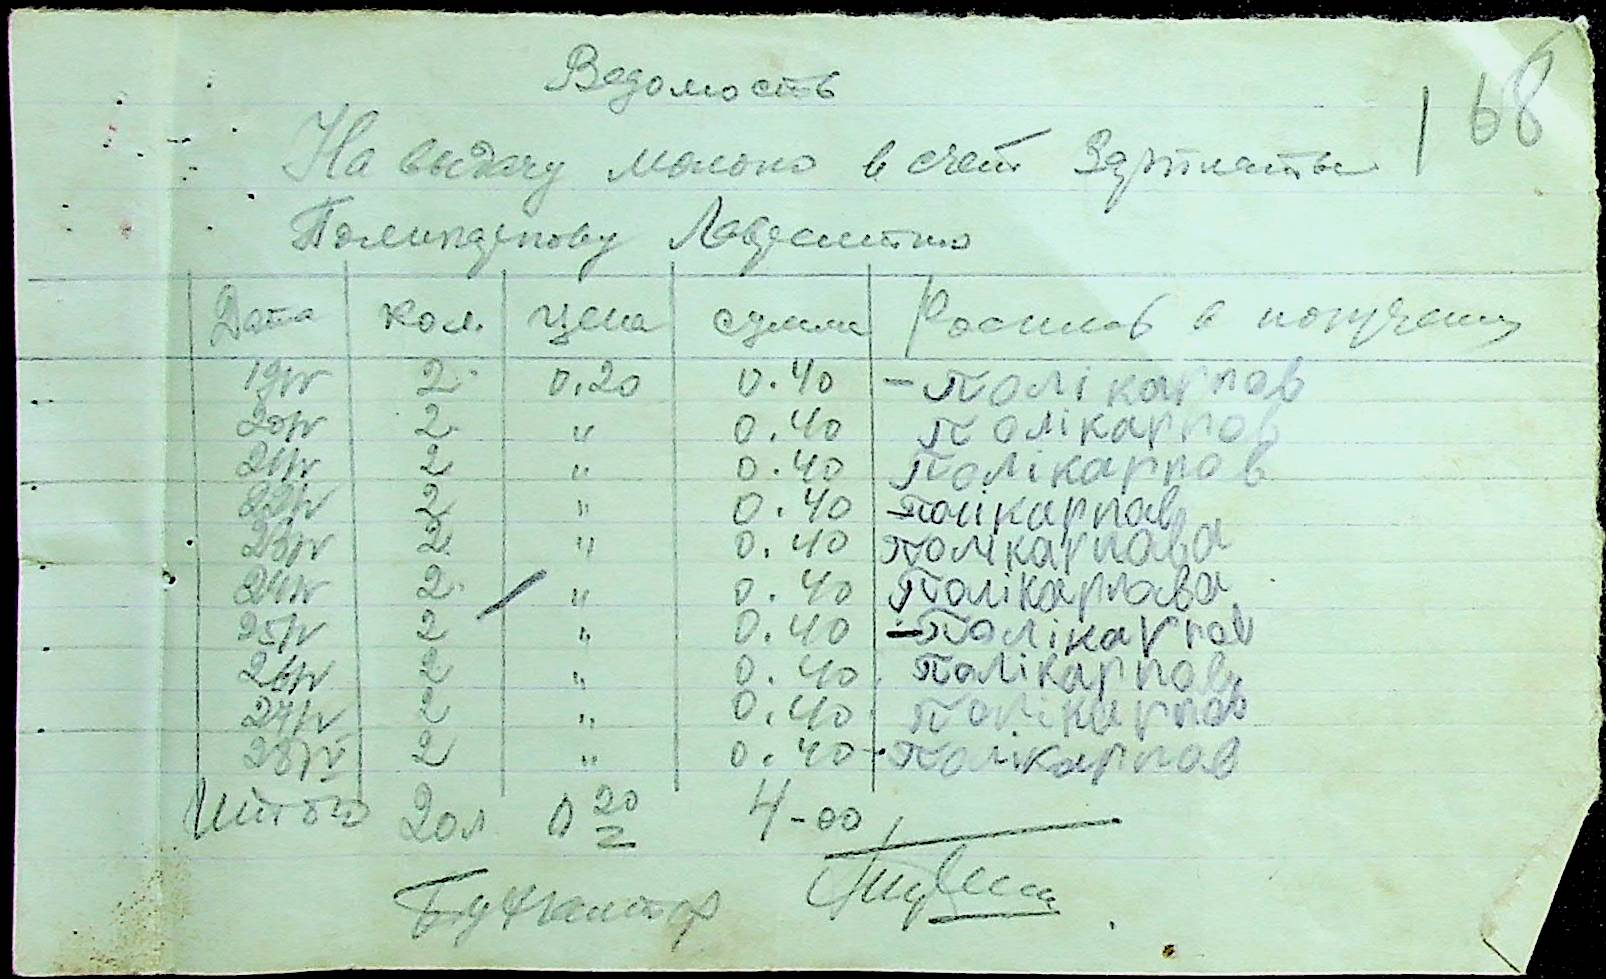 168
Ведомость
На выдачу молоко в счет Зарплаты
Поликарпову Лаврентию
Дата кол. цена сумма Роспись в получении
19/IV 2 0.20 0.40 - Полікарпов
20/IV 2 " 0.40 Полікарпов
21/IV 2 " 0.40 Полікарпов
22/IV 2 " 0.40 - Полікарпов
23/IV 2 " 0.40 Полікарпова
24/IV 2 " 0.40 Полікарпова
25/IV 2 " 0.40 - Полікарпов
26/IV 2 " 0.40 Полікарпов
27/IV 2 " 0.40 Полікарпов
28/IV 2 " 0.40 - Полікарпов
Итого 20л 0 20 4-00
Бухгалтер